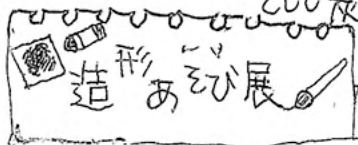 造形あそび展